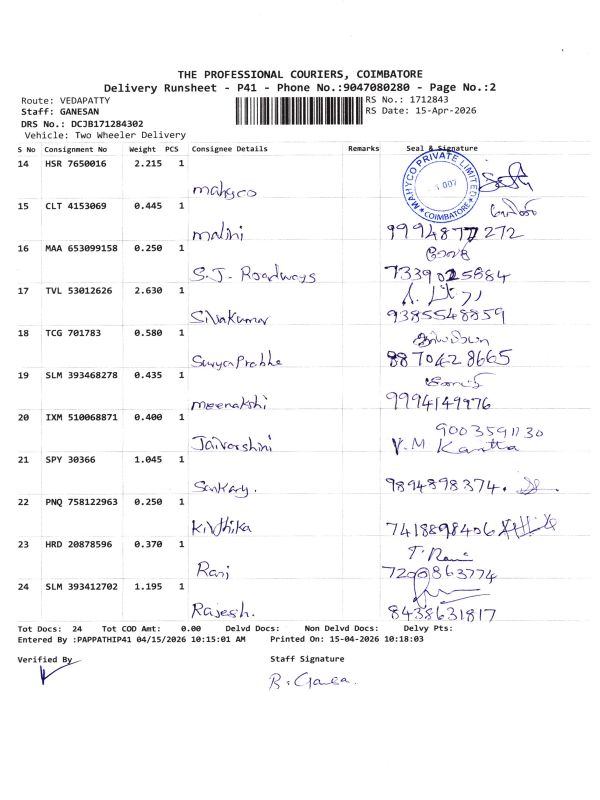 THE PROFESSIONAL COURIERS, COIMBATORE
Delivery Runsheet - P41 - Phone No.:9047080280 - Page No.:2
Route: VEDAPATTY
RS No.: 1712843
Staff: GANESAN
RS Date: 15-Apr-2026
DRS No.: DCJB171284302
Vehicle: Two Wheeler Delivery
S No Consignment No Weight PCS Consignee Details Remarks Seal & Signature
14 HSR 7650016 2.215 1
Mahyco
MAHYCO PRIVATE LIMITED
007
★ COIMBATORE ★
15 CLT 4153069 0.445 1
Malini 9994877272
16 MAA 653099158 0.250 1
S.J. Roadways 7339025884
17 TVL 53012626 2.630 1
Sivakumar 9385548859
18 TCG 701783 0.580 1
SuryaPrabha 8870428665
19 SLM 393468278 0.435 1
meenakshi 9994149976
20 IXM 510068871 0.400 1
9003591130
Jaivarshini V.M Kantta
21 SPY 30366 1.045 1
9894898374.
22 PNQ 758122963 0.250 1
Kivthika 7418898406
23 HRD 20878596 0.370 1
T. Rani
Rani 7200863774
24 SLM 393412702 1.195 1
Rajesh. 8438631817
Tot Docs: 24 Tot COD Amt: 0.00 Delvd Docs: Non Delvd Docs: Delvy Pts:
Entered By :PAPPATHIP41 04/15/2026 10:15:01 AM Printed On: 15-04-2026 10:18:03
Verified By
Staff Signature